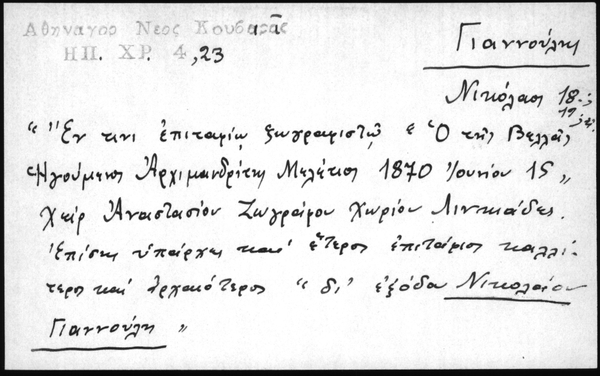 Αθηναγορ Νεος Κουβαρᾶς
ΗΠ. ΧΡ. 4,23
Γιαννούλη
Νικόλαος 18
"Ἔν τινι ἐπιταφίῳ ζωγραφιστῷ « Ὁ τῆς Βελλᾶς
Ἡγούμενος Ἀρχιμανδρίτης Μελέτιος 1870 Ἰουνίου 15 "
Χείρ Ἀναστασίου Ζωγράφου χωρίου Λιγκιάδες.
Ἐπίσης ὑπάρχει καί ἕτερος ἐπιτάφιος καλλί-
τερος καί ἀρχαιότερος " δι' ἐξόδα Νικολάου
Γιαννούλη "